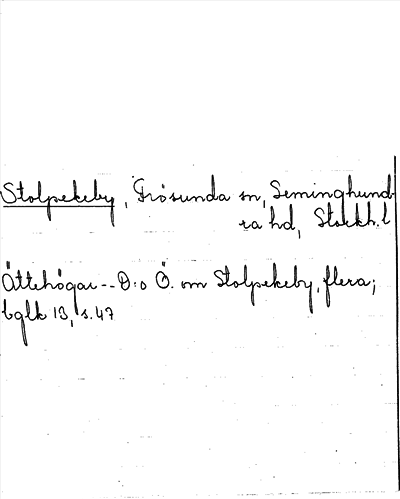 Stolpekeby, Frösunda sn, Seminghund-
ra hd, Stockh. l
Ättehögar -- D. o Ö. om Stolpekeby, flera;
bglk 13, s. 47